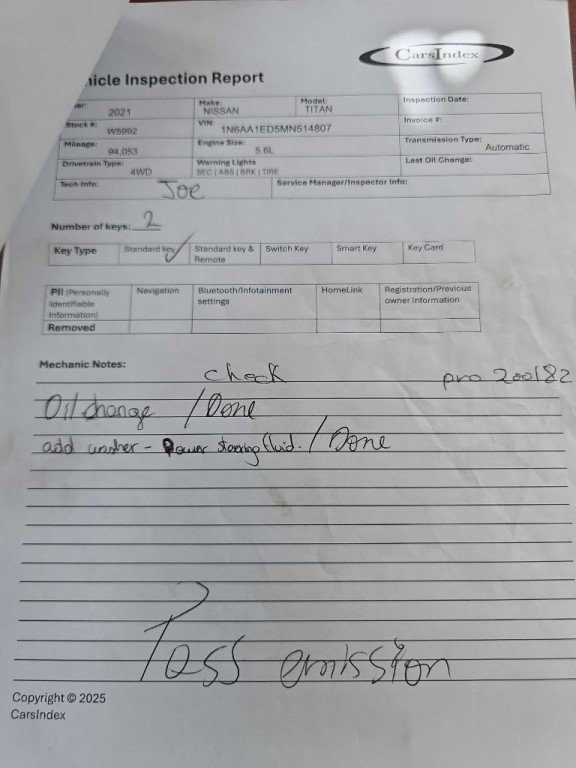 CarsIndex
hicle Inspection Report
Make: Model: Inspection Date:
2021 NISSAN TITAN
Stock #: VIN: Invoice #:
W5992 1N6AA1ED5MN514807
Mileage: Engine Size: Transmission Type:
94,053 5.6L Automatic
Drivetrain Type: Warning Lights Last Oil Change:
4WD SEC | ABS | BRK | TIRE
Tech Info: Joe Service Manager/Inspector Info:
Number of keys: 2
Key Type Standard key Standard key & Remote Switch Key Smart Key Key Card
PII (Personally Identifiable Information) Navigation Bluetooth/Infotainment settings HomeLink Registration/Previous owner Information
Removed
Mechanic Notes:
check pro 200182
Oil change / Done
add washer - Power steering fluid. / Done
Pass emission
Copyright © 2025
CarsIndex